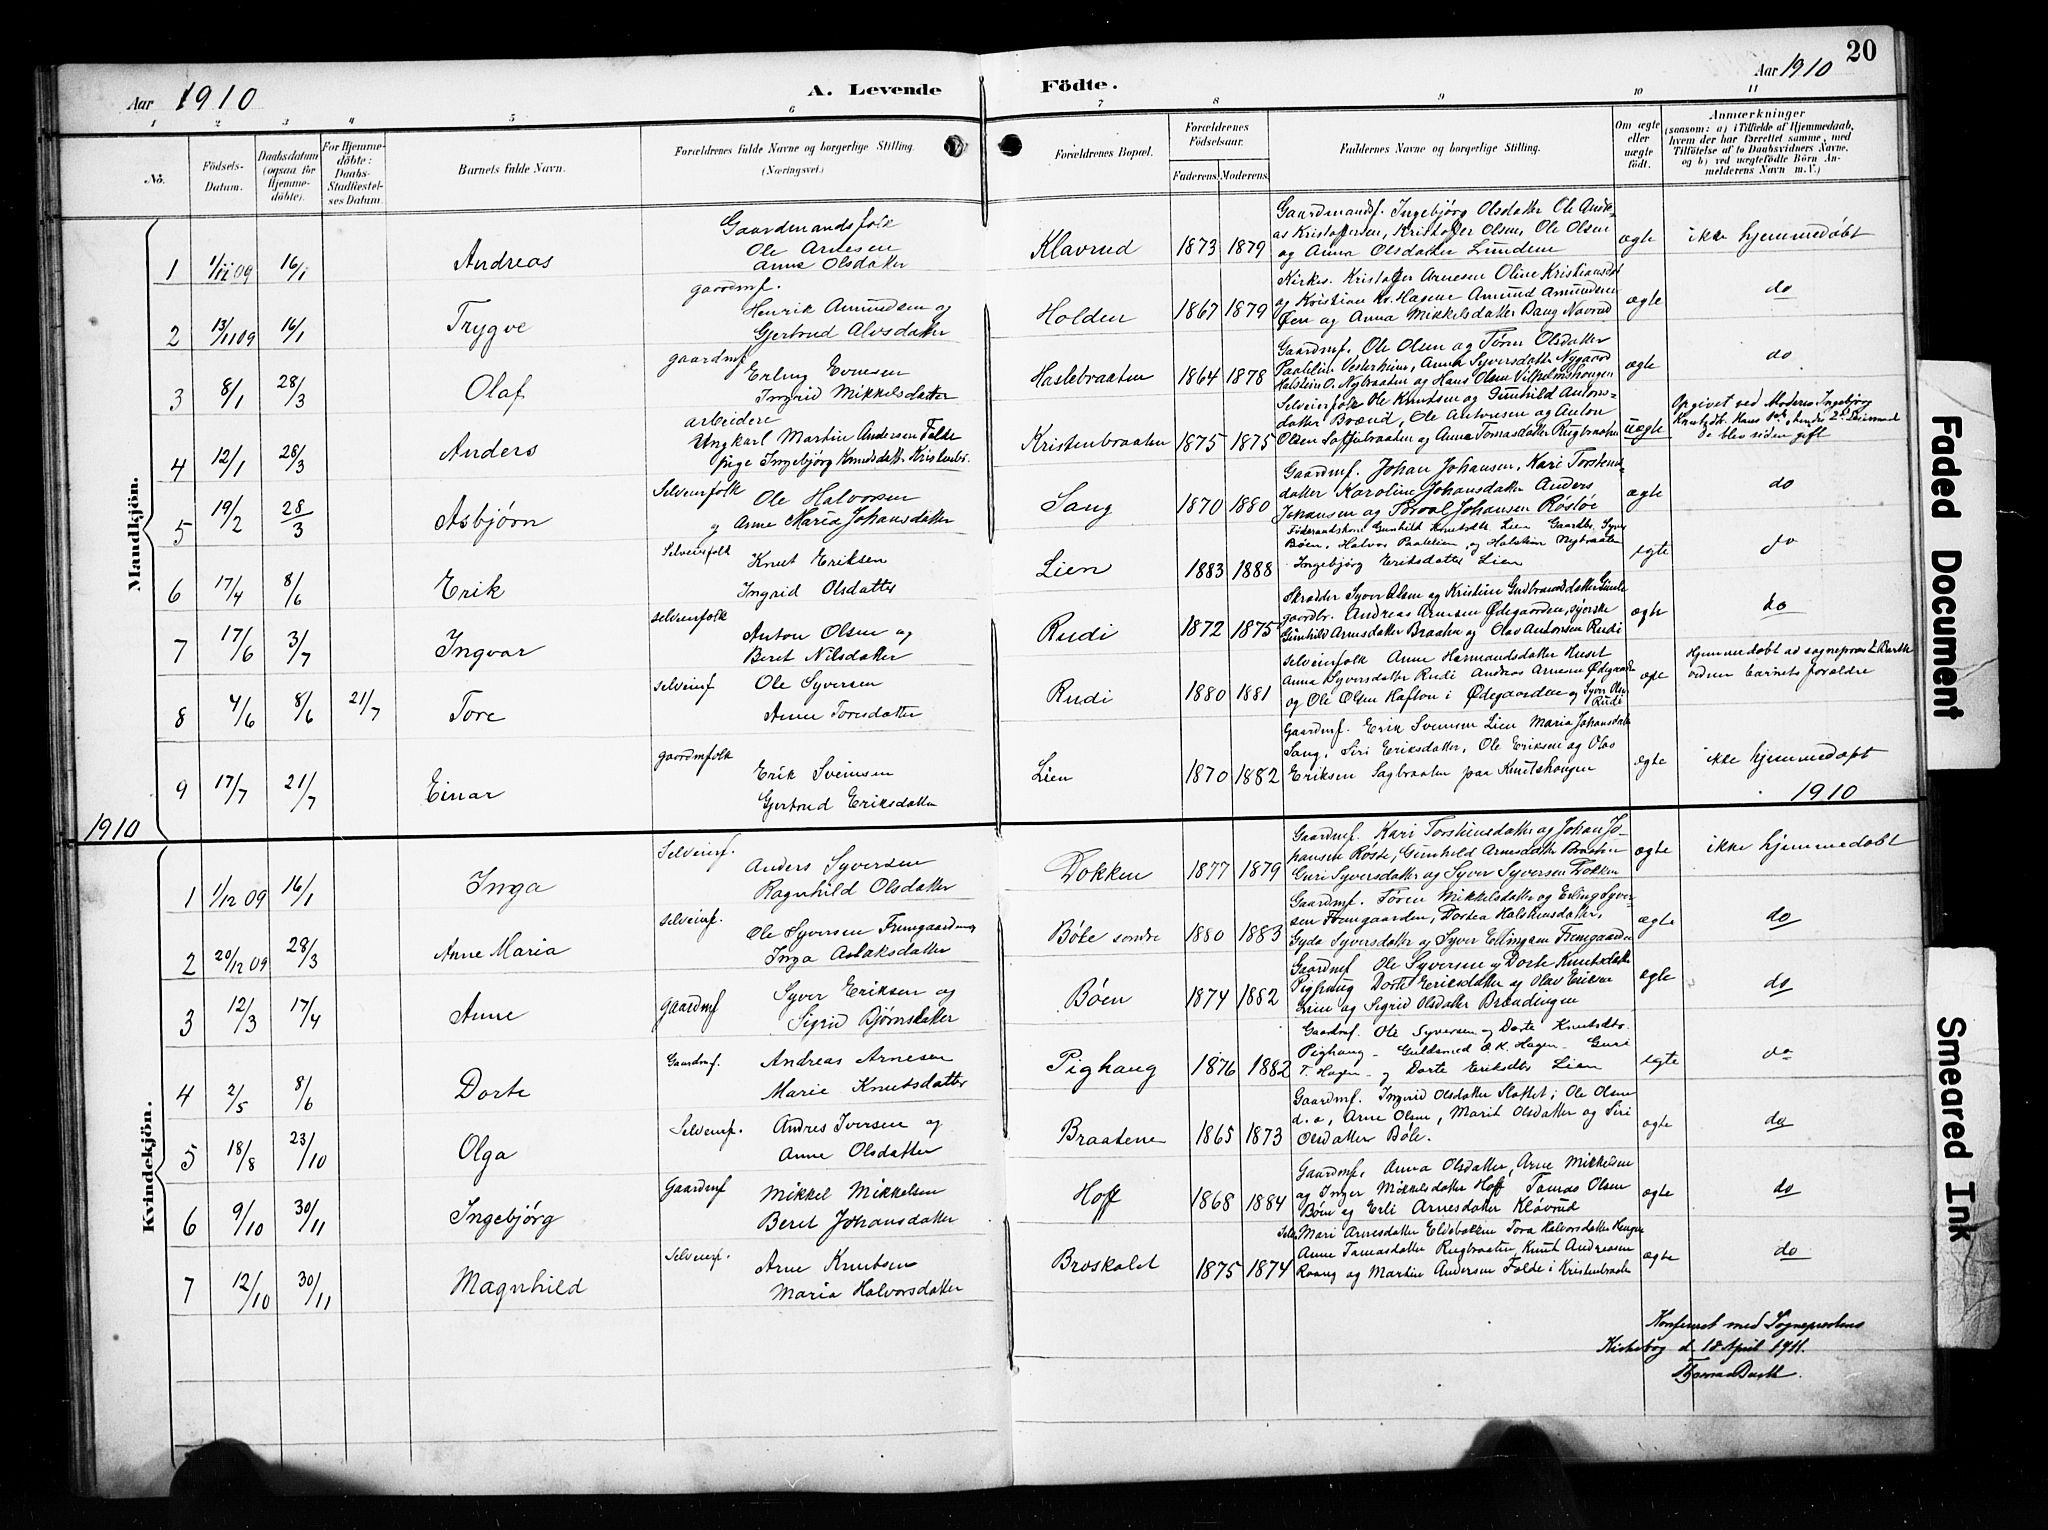 20
Aar 1910
A. Levende Födte.
Aar 1910
1 2 3 4 5 6 7 8 9 10 11
No.
Födsels-Datum.
Daabsdatum (ogsaa for Hjemme-döbte).
For Hjemme-döbte: Daabs-Stadfæstel-ses Datum.
Barnets fulde Navn.
Forældrenes fulde Navne og borgerlige Stilling.
(Næringsvei.)
Forældrenes Bopæl.
Forældrenes Födselsaar.
Faderens. Moderens.
Faddernes Navne og borgerlige Stilling.
Om ægte eller uægte födt.
Anmærkninger
(saasom: a) i Tilfælde af Hjemmedaab, hvem der har forrettet samme, med Tilföielse af to Daabsvidners Navne, og b) ved uægtefödte Börn An-melderens Navn m. V.)
Mandkjön.
1 1/11 09 16/1 Andreas Gaardmandsfolk Ole Arnesen Anne Olsdatter Klavrud 1873 1879 Gaardmandsf. Ingebjørg Olsdatter Ole Andre-as Kristofersen, Kristofer Olsen, Ole Olsen og Anna Olsdatter Lunden ægte ikke hjemmedøbt
2 13/11 09 16/1 Trygve gaardmf. Henrik Amundsen og Gjertrud Alvsdatter Holden 1867 1879 Kirkes. Kristofer Arnesen Oline Kristiansdat og Kristian Ks. Hagene Amund Amundsen Øen og Anna Mikkelsdatter Bang Navrud ægte do
3 8/1 28/3 Olaf gaardmf Erling Evensen Ingrid Mikkelsdatter Haslebraaten 1864 1878 Gaardmf. Ole Olsen og Tøren Olsdatter Paatelien Vesterheim, Anna Syversdatter Nygaard Halstein O. Nybraaten og Hans Olsen Vilhelmshaugen ægte do
4 12/1 28/3 Anders arbeidere Ungkarl Martin Andersen Folde pige Ingebjørg Knudsdatt. Kristenbr. Kristenbraaten 1875 1875 Selveierfolk Ole Knutsen og Gunhild Antons-datter Brænd, Ole Antonsen og Anton Olsen Soffiebraaten og Anna Tomasdatter Rugbraaten uægte Opgivet ved Moderen Ingebjørg De blev siden gift
5 19/2 28/3 Asbjørn Selveierfolk Ole Halvorsen og Anne Maria Johansdatter Sang 1870 1880 Gaardmf. Johan Johansen, Kari Torstens-datter Karoline Johansdatter Anders Johansen og Torval Johansen Røsløe ægte do
6 17/4 8/6 Erik Selveierfolk Knut Eriksen Ingrid Olsdatter Lien 1883 1888 Föderaadskone Gunhild Knutsdtr. Lien Gaardbr. Syver Bøen, Halvor Paatelien, og Halstein Nybraaten Ingebjørg Eriksdatter Lien ægte do
7 17/6 3/7 Ingvar selveierfolk Anton Olsen og Beret Nilsdatter Rudi 1872 1875 Skrædder Syver Olsen og Kristine Gudbrandsdatter gaardbr. Andreas Arnesen Ødegaarden, syerske Gunhild Arnesdatter Braaten og Olav Antonsen Rudi ægte do
8 4/6 8/6 21/7 Tore selveierf Ole Syversen Anne Toresdatter Rudi 1880 1881 selveierfolk Anne Hermandsdatter Huset Anna Syversdatter Rudi Andreas Arnesen Ødegaarden og Ole Olsen Hafton i Ødegaarden og Syver Olsen Rudi ægte Hjemmedøbt ad sognepræst Barth vidner barnets forældre
9 17/7 21/7 Einar gaardmfolk Erik Sveinsen Gjertrud Eriksdatter Lien 1870 1882 Gaardmf. Erik Svensen Lien Maria Johansdatter Sang, Siri Eriksdatter, Ole Eriksen og Olav Eriksen Sagbraaten paa Knutshaugen ægte ikke hjemmedøpt
1910
1910
Kvindekjön.
1 1/12 09 16/1 Inga Selveierf. Anders Syversen Ragnhild Olsdatter Dokken 1877 1879 Gaardmf. Kari Torstensdatter og Johan Jo-hansen Røste, Gunhild Arnesdatter Braaten Guri Syversdatter og Syver Syversen Dokken ægte ikke hjemmedøbt
2 20/12 09 28/3 Anne Maria selveierf. Ole Syversen Fremgaarden Inga Aslaksdatter Bøle søndre 1880 1883 Gaardmf. Tøren Mikkelsdatter og Erling Syver-sen Fremgaarden, Dortea Halstensdatter, Gyda Syversdatter og Syver Erlingsen Fremgaarden ægte do
3 12/3 17/4 Anne Gaardmf Syver Eriksen og Sigrid Bjørnsdatter Bøen 1874 1882 Gaardmf Ole Syversen og Dorte Knutsdatter Pighaug Dorte Eriksdatter og Olav Eriksen Lien og Sigrid Olsdatter Brændengen ægte do
4 2/5 8/6 Dorte Gaardmf. Andreas Arnesen Marie Knutsdatter Pighaug 1876 1882 Gaardmf. Ole Syversen og Dorte Knutsdtr. Pighaug - Guldsmed O. K. Hagen - Guri T. Hagen - og Dorte Eriksdtr Lien ægte do
5 18/8 23/10 Olga Selveierf. Andres Iversen og Anne Olsdatter Braatene 1865 1873 Gaardmf. Ingrid Olsdatter Slattet; Ole Olsen d.o, Arne Olsen, Marit Olsdatter og Siri Olsdatter Bøle. ægte do
6 9/10 30/11 Ingebjørg Gaardmf Mikkel Mikkelsen Beret Johansdatter Hoff 1868 1884 Gaardmf. Anna Olsdatter, Arne Mikkelsen og Inger Mikkelsdatter Hoff Tomas Olsen Bøen og Erli Arnesdatter Kløvrud ægte do
7 12/10 30/11 Magnhild Selveierf. Arne Knutsen Maria Halvorsdatter Broskalet 1875 1874 Selv. Mari Arnesdatter Eldebakken Tora Halvorsdatter Anne Tomasdatter Rugbraaten, Knut Andreasen Raang og Martin Andersen Folde i Kristenbraaten ægte do
Konfereret med Sogneprestens
Kirkebog d. 18 April 1911.
Thomas Barth
Faded Document
Smeared Ink